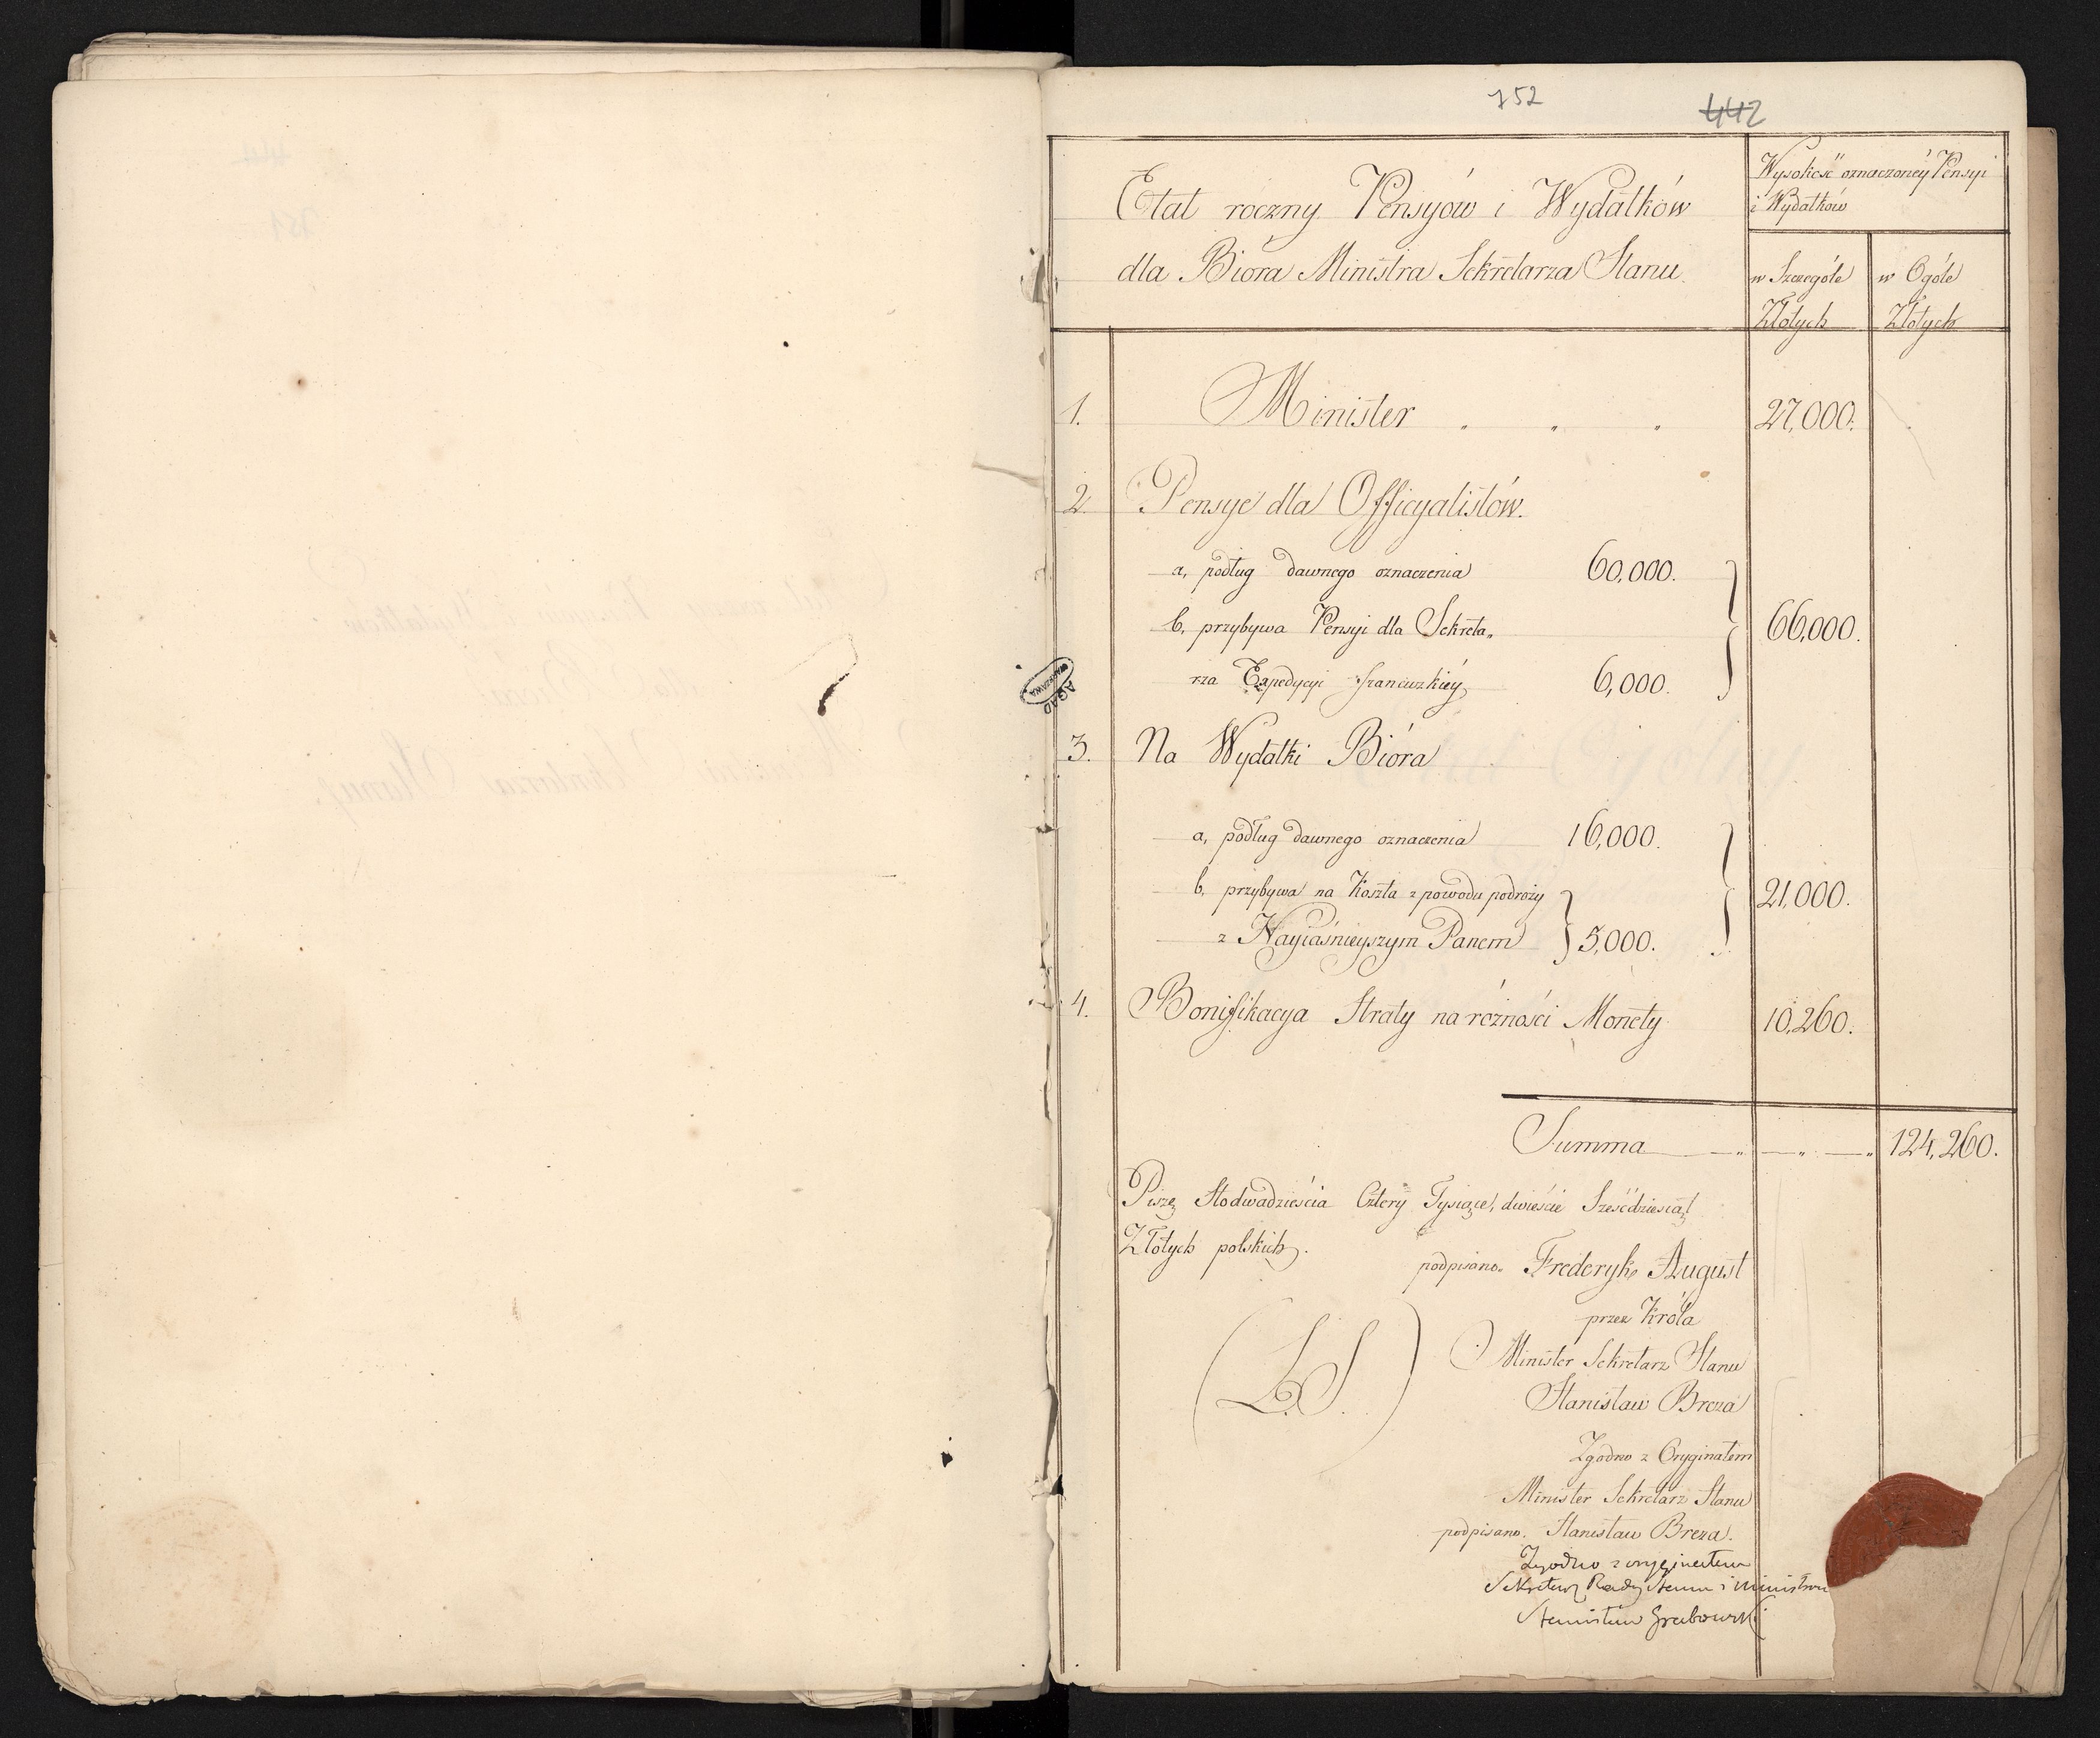 752
442
Etat roczny Pensyów i Wydatków
dla Biora Ministra Sekretarza Stanu.
Wysokość oznaczonéy Pensyi
i Wydatków
w Szczególe
Złotych
w Ogóle
Złotych
1. Minister " " " 27,000.
2. Pensye dla Officyalistów.
a, podług dawnego oznaczenia 60,000.
b, przybywa Pensyi dla Sekreta„
rza Expedycyi francuzkiéy 6,000.
66,000.
3. Na Wydatki Bióra
a, podług dawnego oznaczenia 16,000.
b, przybywa na Koszta z powodu podroży
z Nayiaśnieyszym Panem 5,000.
21,000.
4. Bonifikacya Straty na różności Monety 10,260.
Summa 124,260.
Piszę Stodwadzieścia Cztery Tysiące, dwieście Sześćdziesiąt
Złotych polskich.
podpisano. Frederyk August
przez Króla
(L.S.)
Minister Sekretarz Stanu
Stanisław Breza
Zgodno z Oryginałem
Minister Sekretarz Stanu
podpisano. Stanisław Breza.
Zgodno z oryginałem
Sekretarz Rady Stanu i Ministrów
Stanisław Grabowski
AGAD
WARSZAWA